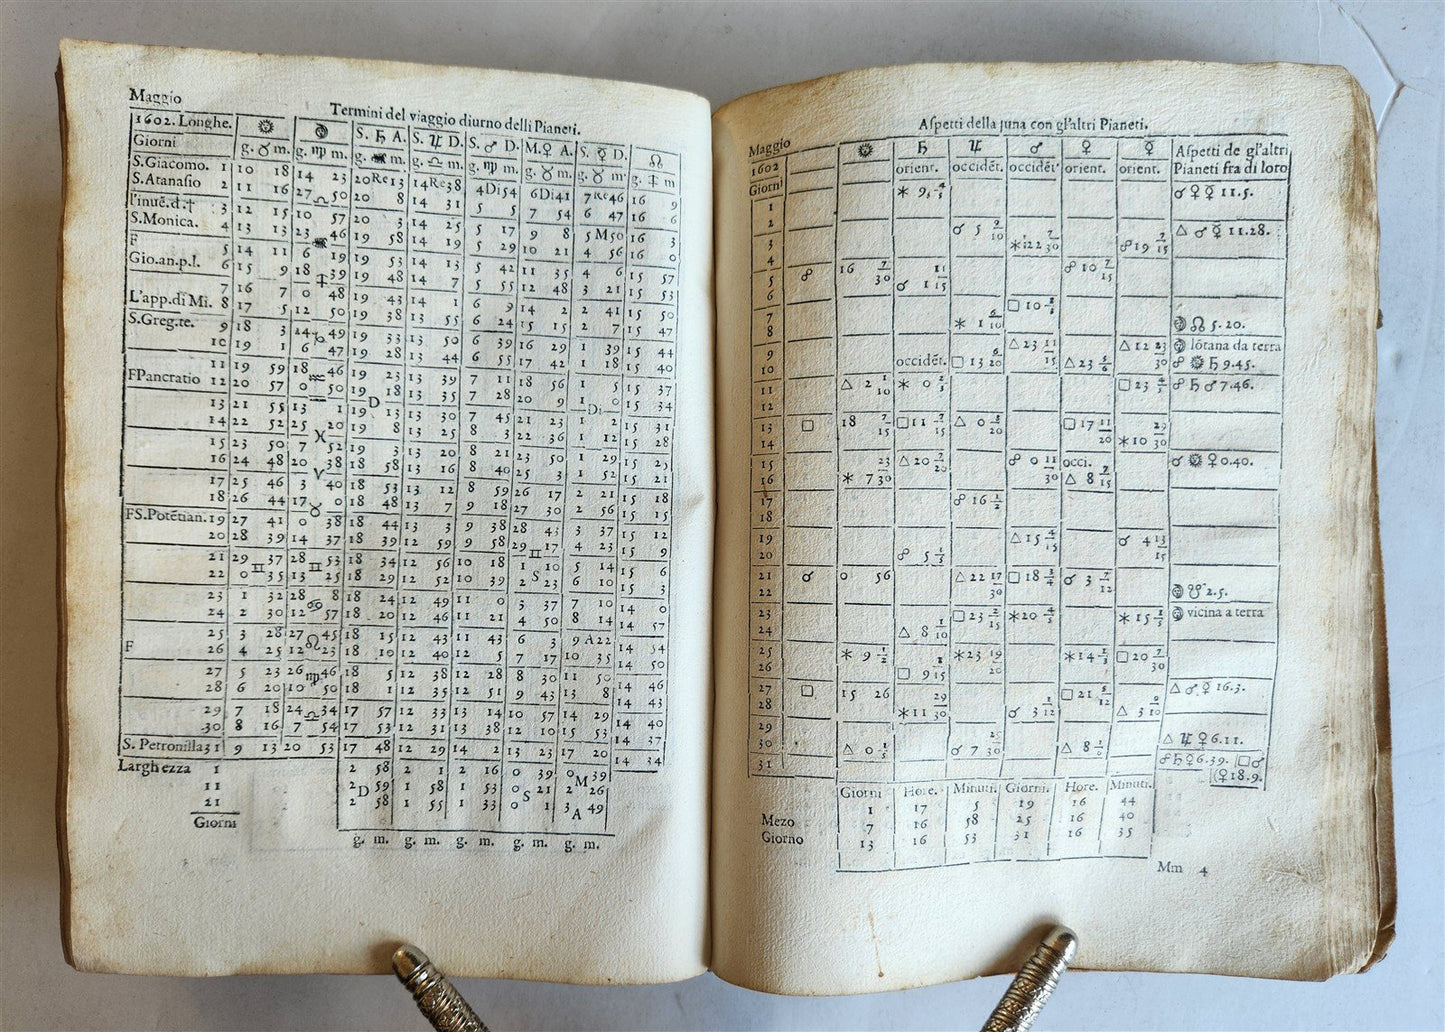 Maggio
Termini del viaggio diurno delli Pianeti.
1602. Longhe. ☉
S. ♄ A. S. ♃ D. S. ♂ D. M. ♀ A. S. ☿ D. ☊
Giorni g. ♉ m. g. ♍ m. g. m. g. ♎ m. g. ♍ m. g. ♉ m. g. ♉ m. g. ♐ m
S. Giacomo. 1 10 18 14 23 20 Re 13 14 Re 38 4 Di 54 6 Di 41 7 Re 46 16 9
S. Atanasio 2 11 16 27 ♎ 50 20 8 14 31 5 5 7 54 6 47 16 6
l'inuē.d.† 3 12 15 10 57 20 3 14 25 5 17 9 8 5 M 50 16 3
S. Monica. 4 13 13 23 46 19 58 14 19 5 29 10 21 4 56 16 0
F 5 14 11 6 19 19 53 14 13 5 42 11 35 4 6 15 57
Gio.an.p.l. 6 15 9 18 ♐ 39 19 48 14 7 5 55 12 48 3 21 15 53
7 16 7 0 48 19 43 14 1 6 9 14 2 2 41 15 50
L'app.di Mi. 8 17 5 12 50 19 38 13 55 6 24 15 15 2 7 15 47
S. Greg.te. 9 18 3 24 ♑ 49 19 33 13 50 6 39 16 29 1 39 15 44
10 19 1 6 47 19 28 13 44 6 55 17 42 1 18 15 40
11 19 59 18 ♒ 46 19 23 13 39 7 11 18 56 1 5 15 37
F Pancratio 12 20 57 0 50 19 D 18 13 35 7 28 20 9 1 0 15 34
13 21 55 13 1 19 13 13 30 7 45 21 23 Di 1 2 15 31
14 22 52 25 ♓ 20 19 8 13 25 8 3 22 36 1 12 15 28
15 23 50 7 52 19 3 13 20 8 21 23 50 1 29 15 25
16 24 48 20 ♈ 38 18 58 13 16 8 40 25 3 1 52 15 21
17 25 46 3 40 18 53 13 12 8 59 26 17 2 21 15 18
18 26 44 17 ♉ 0 18 48 13 7 9 18 27 30 2 56 15 15
F S. Potētian. 19 27 41 0 38 18 44 13 3 9 38 28 43 3 37 15 12
20 28 39 14 37 18 39 12 59 9 58 29 ♊ 17 4 23 15 9
21 29 ♊ 37 28 ♊ 53 18 34 12 56 10 18 1 10 5 14 15 6
22 0 35 13 25 18 29 12 52 10 39 2 S 23 6 10 15 3
23 1 32 28 ♋ 8 18 24 12 49 11 0 3 37 7 10 14 0
24 2 30 12 57 18 20 12 46 11 21 4 50 8 14 14 57
25 3 28 27 ♌ 45 18 15 12 43 11 43 6 3 9 A 22 14 54
F 26 4 25 12 23 18 10 12 40 12 5 7 17 10 35 14 50
27 5 23 26 ♍ 46 18 5 12 38 12 28 8 30 11 50 14 46
28 6 20 10 50 18 1 12 35 12 51 9 43 13 8 14 43
29 7 18 24 ♎ 34 17 57 12 33 13 14 10 57 14 29 14 40
30 8 16 7 54 17 53 12 31 13 38 12 10 15 53 14 37
S. Petronilla 31 9 13 20 53 17 48 12 29 14 2 13 23 17 20 14 34
Larghezza 1 2 58 2 1 2 16 0 39 0 M 39
11 2 D 59 1 58 1 53 0 S 21 2 26
21 2 58 1 55 1 33 0 1 3 A 49
Giorni
g. m. g. m. g. m. g. m. g. m.
Maggio
Aspetti della luna con gl'altri Pianeti.
1602 ☉ ♄ ♃ ♂ ♀ ☿ Aspetti de gl'altri
Giorni orient. occidēt. occidēt' orient. orient. Pianeti fra di loro
1 ⚹ 9 4/5 ☌ ♀ ☿ 11.5.
2
3 ☌ 5 9/10 △ ♂ ☿ 11.28.
4 ⚹ 22 7/30 ☍ 19 7/15
5 ☍ 16 7/30 ☍ 10 7/15
6 ☌ 1 11/15
7 □ 10
8 ⚹ 1 6/10 ☊ 5.20.
9 △ 23 11/15 △ 12 23/30 lōtana da terra
10 occidēt. □ 13 △ 23 5/6 ☍ ☉ ♄ 9.45.
11 △ 2 1/10 ⚹ 0 2/5 □ 23 4/5 ☍ ♄ ♂ 7.46.
12
13 □ 18 7/15 □ 11 7/15 △ 0 □ 17 11/20
14 ⚹ 10 29/30
15 △ 20 7/20 ☍ 0 11/30 occi. ☌ ☉ ♀ 0.40.
16 ⚹ 7 23/30 △ 8
17 ☍ 16 1/2
18
19 △ 15 4/15 ☌ 4 13/15
20 ☍ 5
21 ☌ 0 56 △ 22 17/30 □ 18 3/4 ☌ 3 7/12
22 ☋ 2.5.
23 □ 23 2/15 ⚹ 20 ⚹ 15 vicina a terra
24 △ 8 1/10
25 ⚹ 9 1/2 ⚹ 23 19/20 ⚹ 14 1/3 □ 20 7/30
26 □ 9
27 □ 15 26 □ 21 5/12 △ ♂ ☿ 16.3.
28 ⚹ 11 29/30 ☌ 3 1/12 △ 3
29
30 △ 0 1/5 ☌ 7 △ 8 △ ♃ ♀ 6.11.
31 ☍ ♄ ♀ 6.39. □ ♂
♀ 18.9.
Giorni Hore. Minuti. Giorni. Hore. Minuti.
1 17 5 19 16 44
Mezo 7 16 58 25 16 40
Giorno 13 16 53 31 16 35
Mm 4